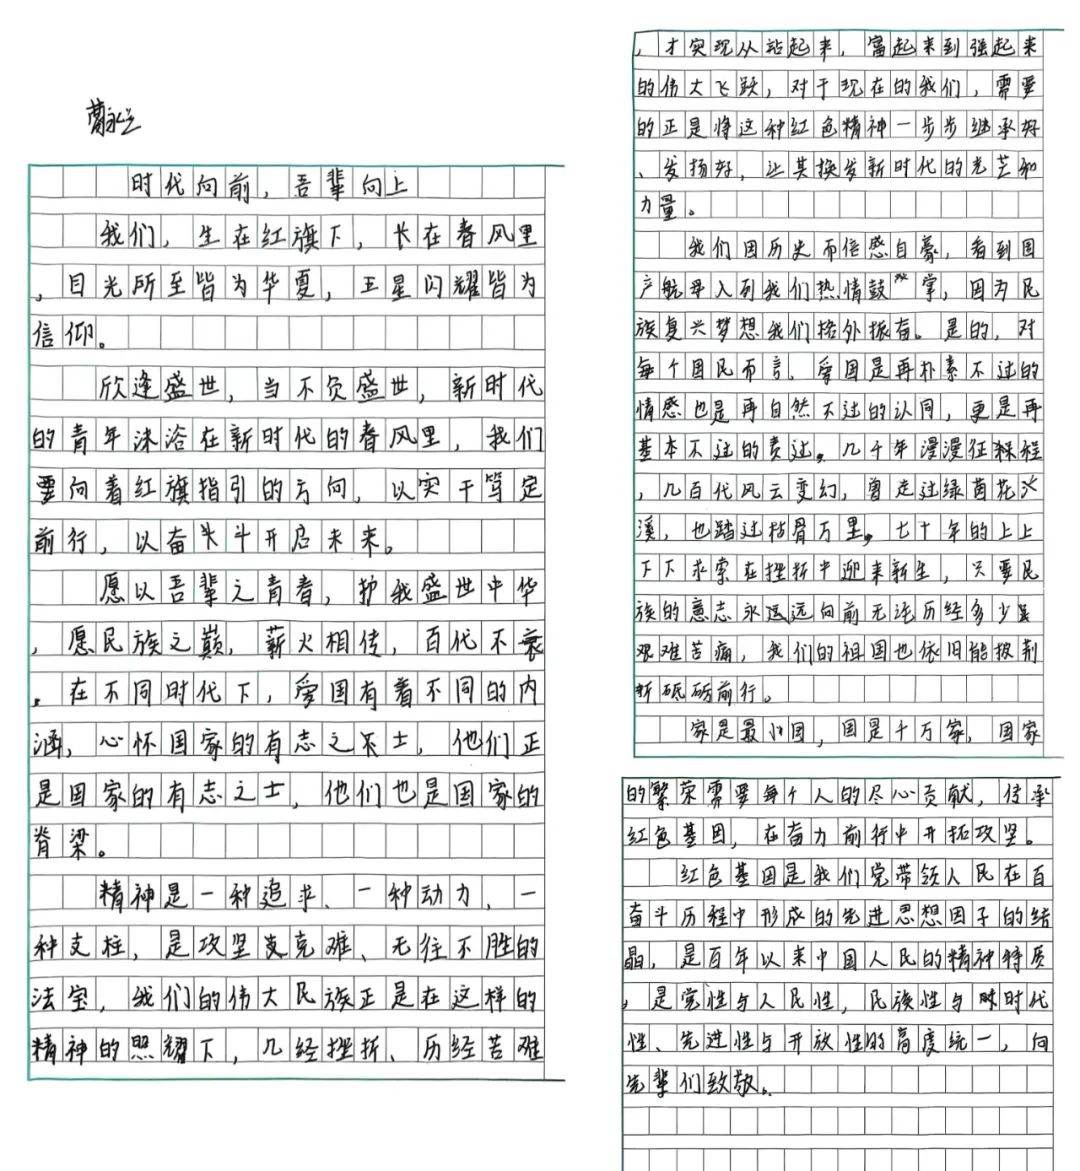 时代向前，吾辈向上
我们，生在红旗下，长在春风里
，目光所至皆为华夏，五星闪耀皆为
信仰。
欣逢盛世，当不负盛世，新时代
的青年沐浴在新时代的春风里，我们
要向着红旗指引的方向，以实干笃定
前行，以奋头斗开启未来。
愿以吾辈之青春，护我盛世中华
，愿民族之巅，薪火相传，百代不衰
。在不同时代下，爱国有着不同的内
涵，心怀国家的有志之士，他们正
是国家的有志之士，他们也是国家的
脊梁。
精神是一种追求、一种动力、一
种支柱，是攻坚克难、无往不胜的
法宝，我们的伟大民族正是在这样的
精神的照耀下，几经挫折、历经苦难
，才实现从站起来，富起来到强起来
的伟大飞跃，对于现在的我们，需要
的正是将这种红色精神一步步继承好
、发扬好，让其换发新时代的光芒和
力量。
我们因历史而倍感自豪，看到国
产航母入列我们热情鼓掌，因为民
族复兴梦想我们格外振奋。是的，对
每个国民而言，爱国是再朴素不过的
情感也是再自然不过的认同，更是再
基本不过的责过。几千年漫漫征程
，几百代风云变幻，曾走过绿茵花
溪，也踏过枯骨万里。七十年的上上
下下求索在挫折中迎来新生，只要民
族的意志永远远向前无论历经多少
艰难苦痛，我们的祖国也依旧能披荆
斩砥砺前行。
家是最小国，国是千万家，国家
的繁荣需要每个人的尽心贡献，传承
红色基因，在奋力前行中开拓攻坚。
红色基因是我们党带领人民在百
奋斗历程中形成的先进思想因子的结
晶，是百年以来中国人民的精神特质
，是党性与人民性，民族性与时代
性、先进性与开放性的高度统一，向
先辈们致敬。